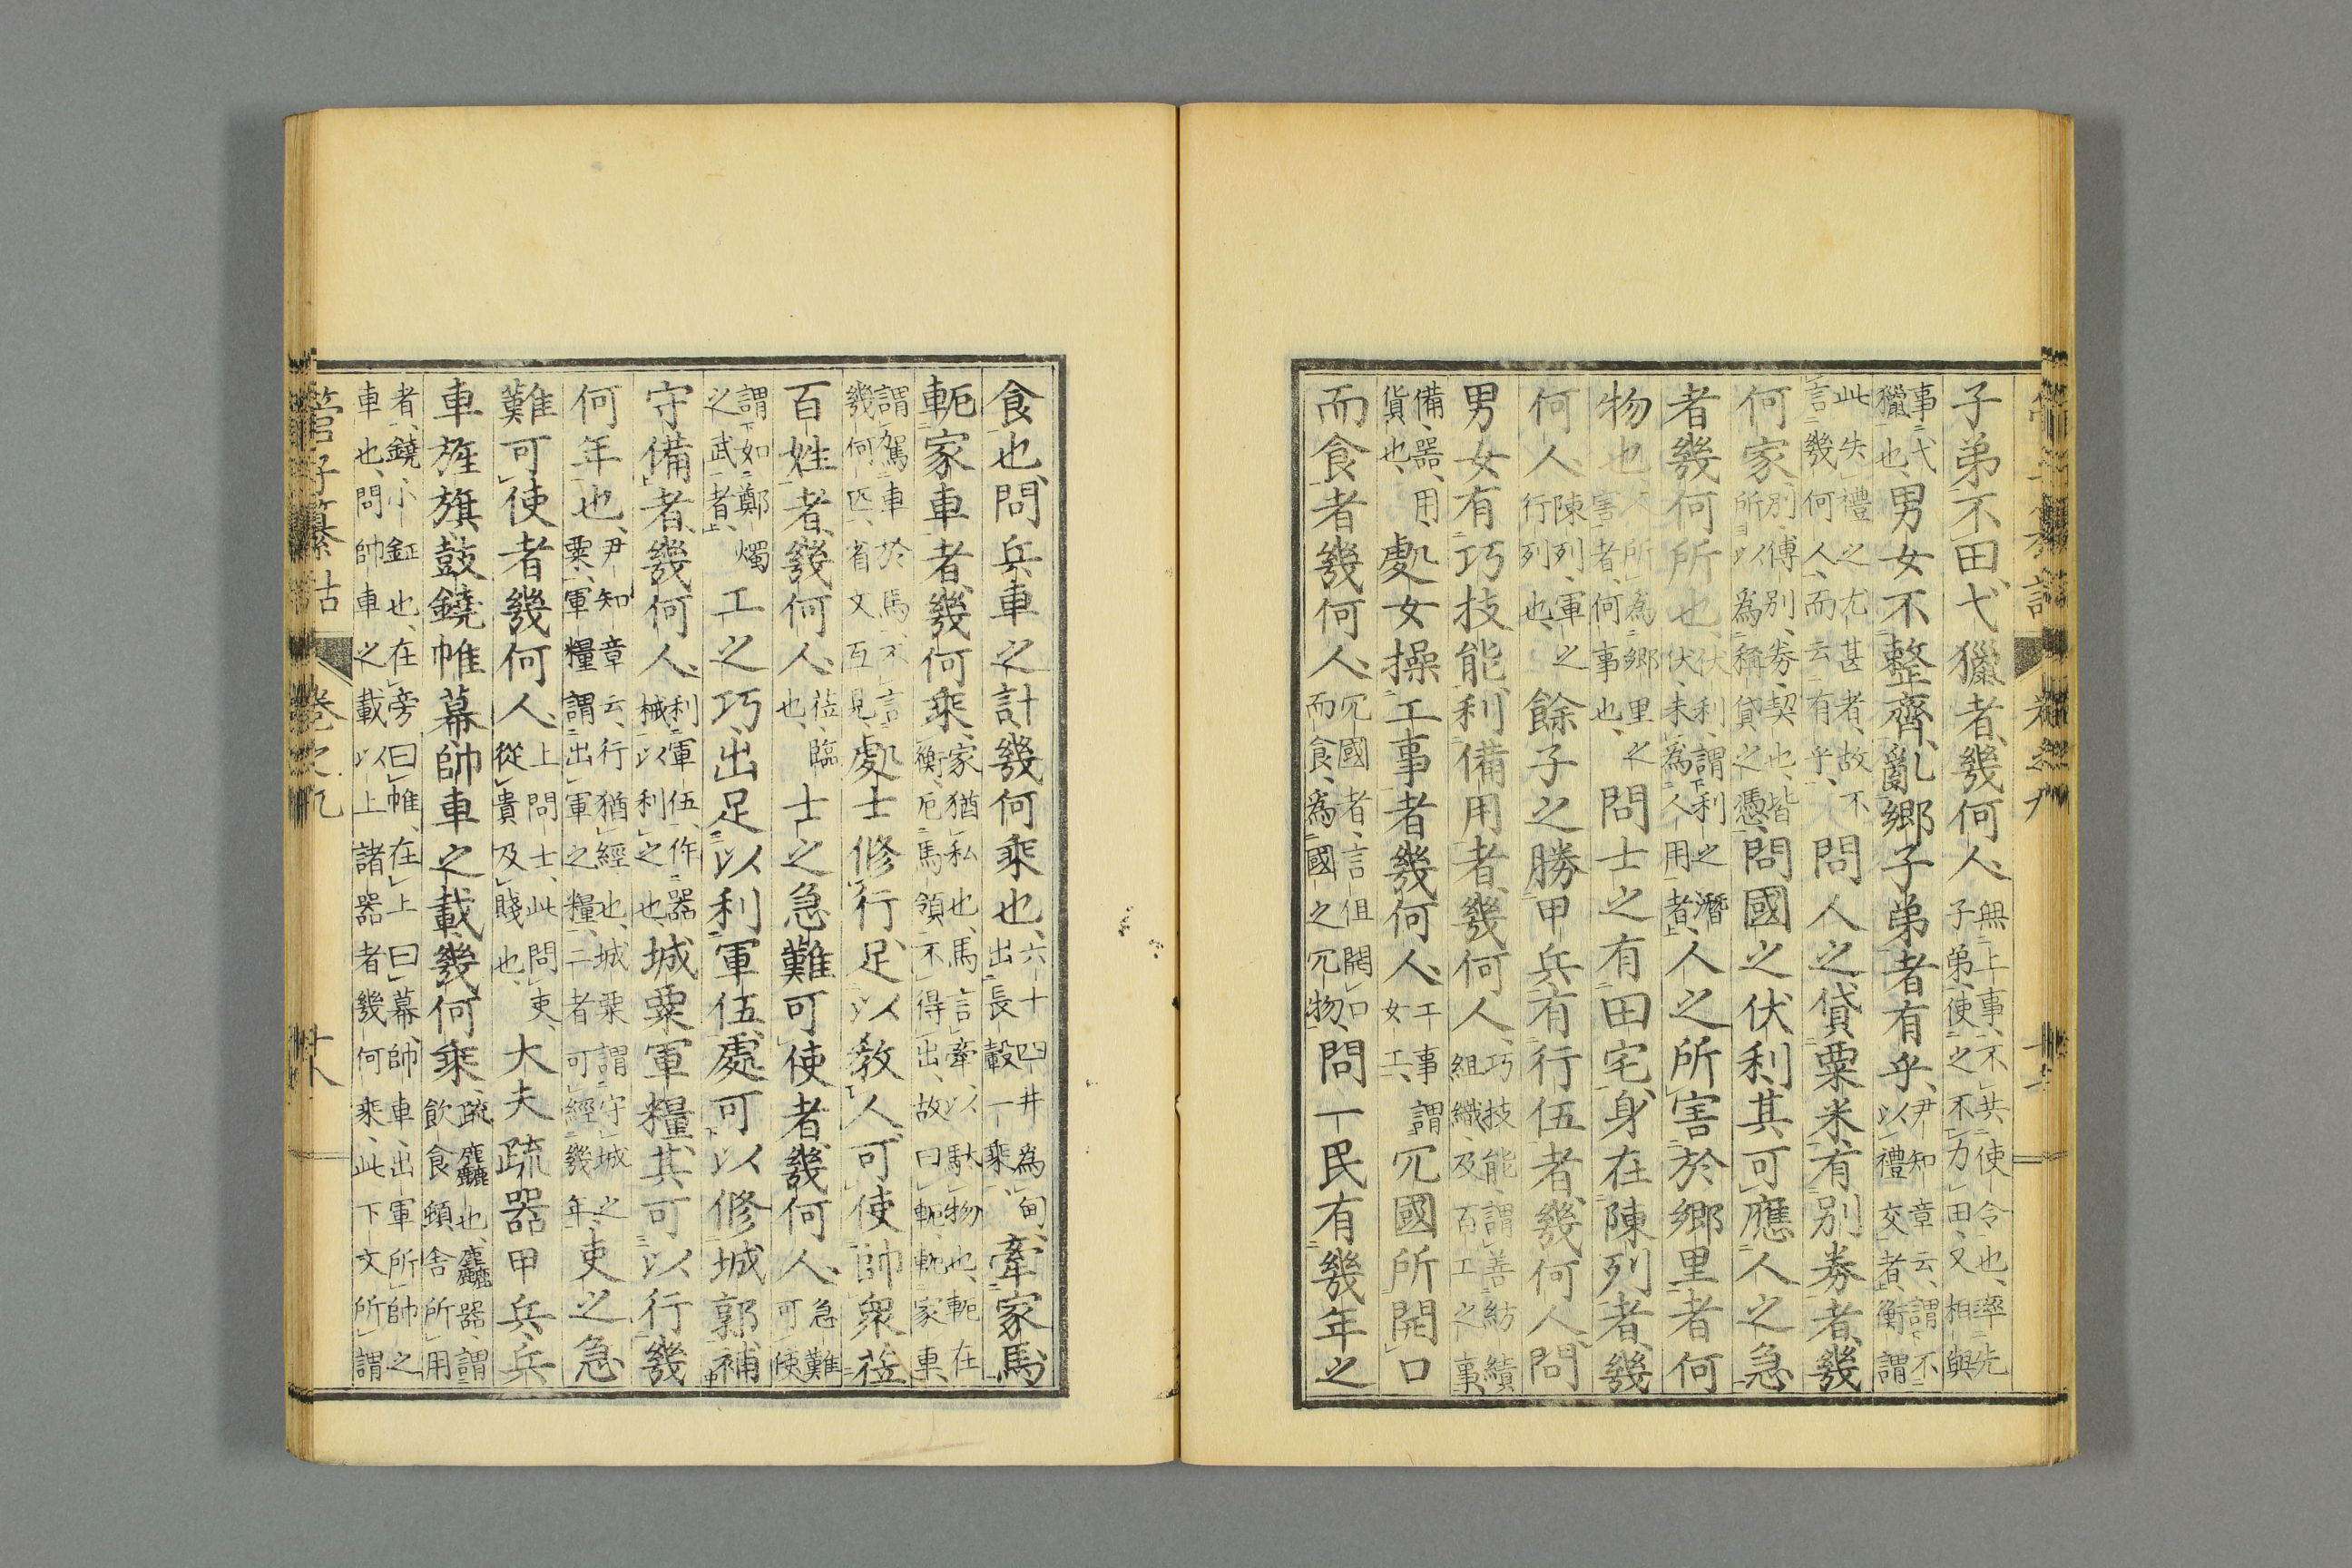 子弟不田弋獵者、幾何人、無上事、不共使令也、率先子弟、使之不力田、又相與
事弋獵也、男女不整齊、亂鄉子弟者有乎、尹知章云、謂不以禮交者、衡謂
此失禮之尤甚者、故不言幾何人、而云有乎、問人之貸粟米、有別券者、幾
何家、別、傅別、券、契也、皆所以為稱貸之憑、問國之伏利、其可應人之急
者幾何所也、伏利、謂利之潛伏、未為人用者、人之所害於鄉里者何
物也、人所為鄉里之害者、何事也、問士之有田宅、身在陳列者、幾
何人、陳列、軍之行列也、餘子之勝甲兵有行伍者、幾何人、問
男女有巧技能、利備用者、幾何人、巧技能、謂善紡績組織、及百工之事、
備、器、用、貨也、處女操工事者幾何人、工事謂女工、冗國所開口
而食者幾何人、冗國者、言但開口而食、為國之冗物、問一民有幾年之
食也、問兵車之計幾何乘也、六十四井為甸、出長轂一乘、牽家馬
軶家車者、幾何乘、家猶私也、馬言牽、以馱物也、軶在衡、厄馬領不得出、故曰軶、軶家車、
謂駕車於馬、不言幾何匹、省文互見、處士修行、足以教人、可使帥眾莅
百姓者、幾何人、莅、臨也、士之急難可使者、幾何人、急難可使
謂如鄭燭之武者、工之巧、出足以利軍伍、處可以修城郭、補
守備者、幾何人、利軍伍、作器械以利之也、城粟軍糧、其可以行幾
何年也、尹知章云、行猶經也、城粟謂守城之粟、軍糧謂出軍之糧、二者可經幾年、吏之急
難可使者幾何人、上問士、此問吏、從貴及賤也、大夫疏器、甲兵、兵
車、旌旗、鼓鐃、帷幕、帥車之載、幾何乘、疏、麤也、麤器、謂飲食頓舍所用
者、鐃、小鉦也、在旁曰帷、在上曰幕、帥車、出軍所帥之車也、問帥車之載以上諸器者幾何乘、此下文所謂
管子纂詁 卷之九